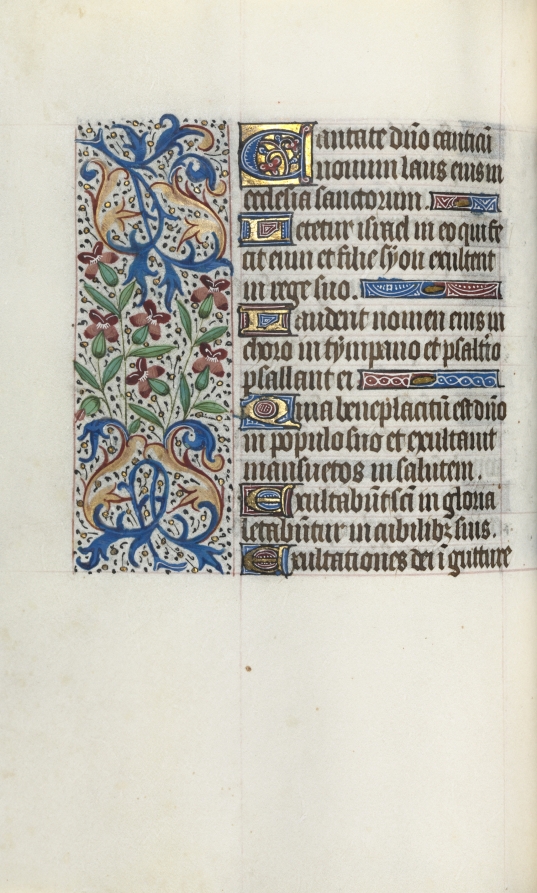 Cantate dño canticũ
nouum laus eius in
ecclesia sanctorum.
Letetur israel in eo qui fe
cit eum et filie syon exultent
in rege suo.
Laudent nomen eius in
choro in tympano et psalt̃io
psallant ei
Quia beneplacitũ est dño
in populo suo et exultauit
mansuetos in salutem.
Exultabũt sc̃i in gloria
letabuntur in cubilibꝫ suis.
Exultationes dei ĩ gutture